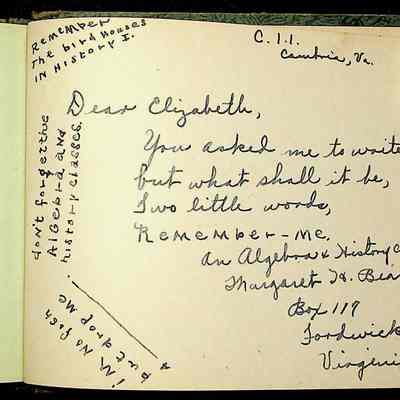 Remember
The bird houses
in History I.
C. I. I.
Cambria, Va.
Dear Elizabeth,
You asked me to write
but what shall it be,
Two little words,
Remember-me.
An Algebra & History
Margaret H.
Box 117
Fordwick
Virginia
don't forget the
Algebra and
history classes.
I'm no fish
but drop me
a